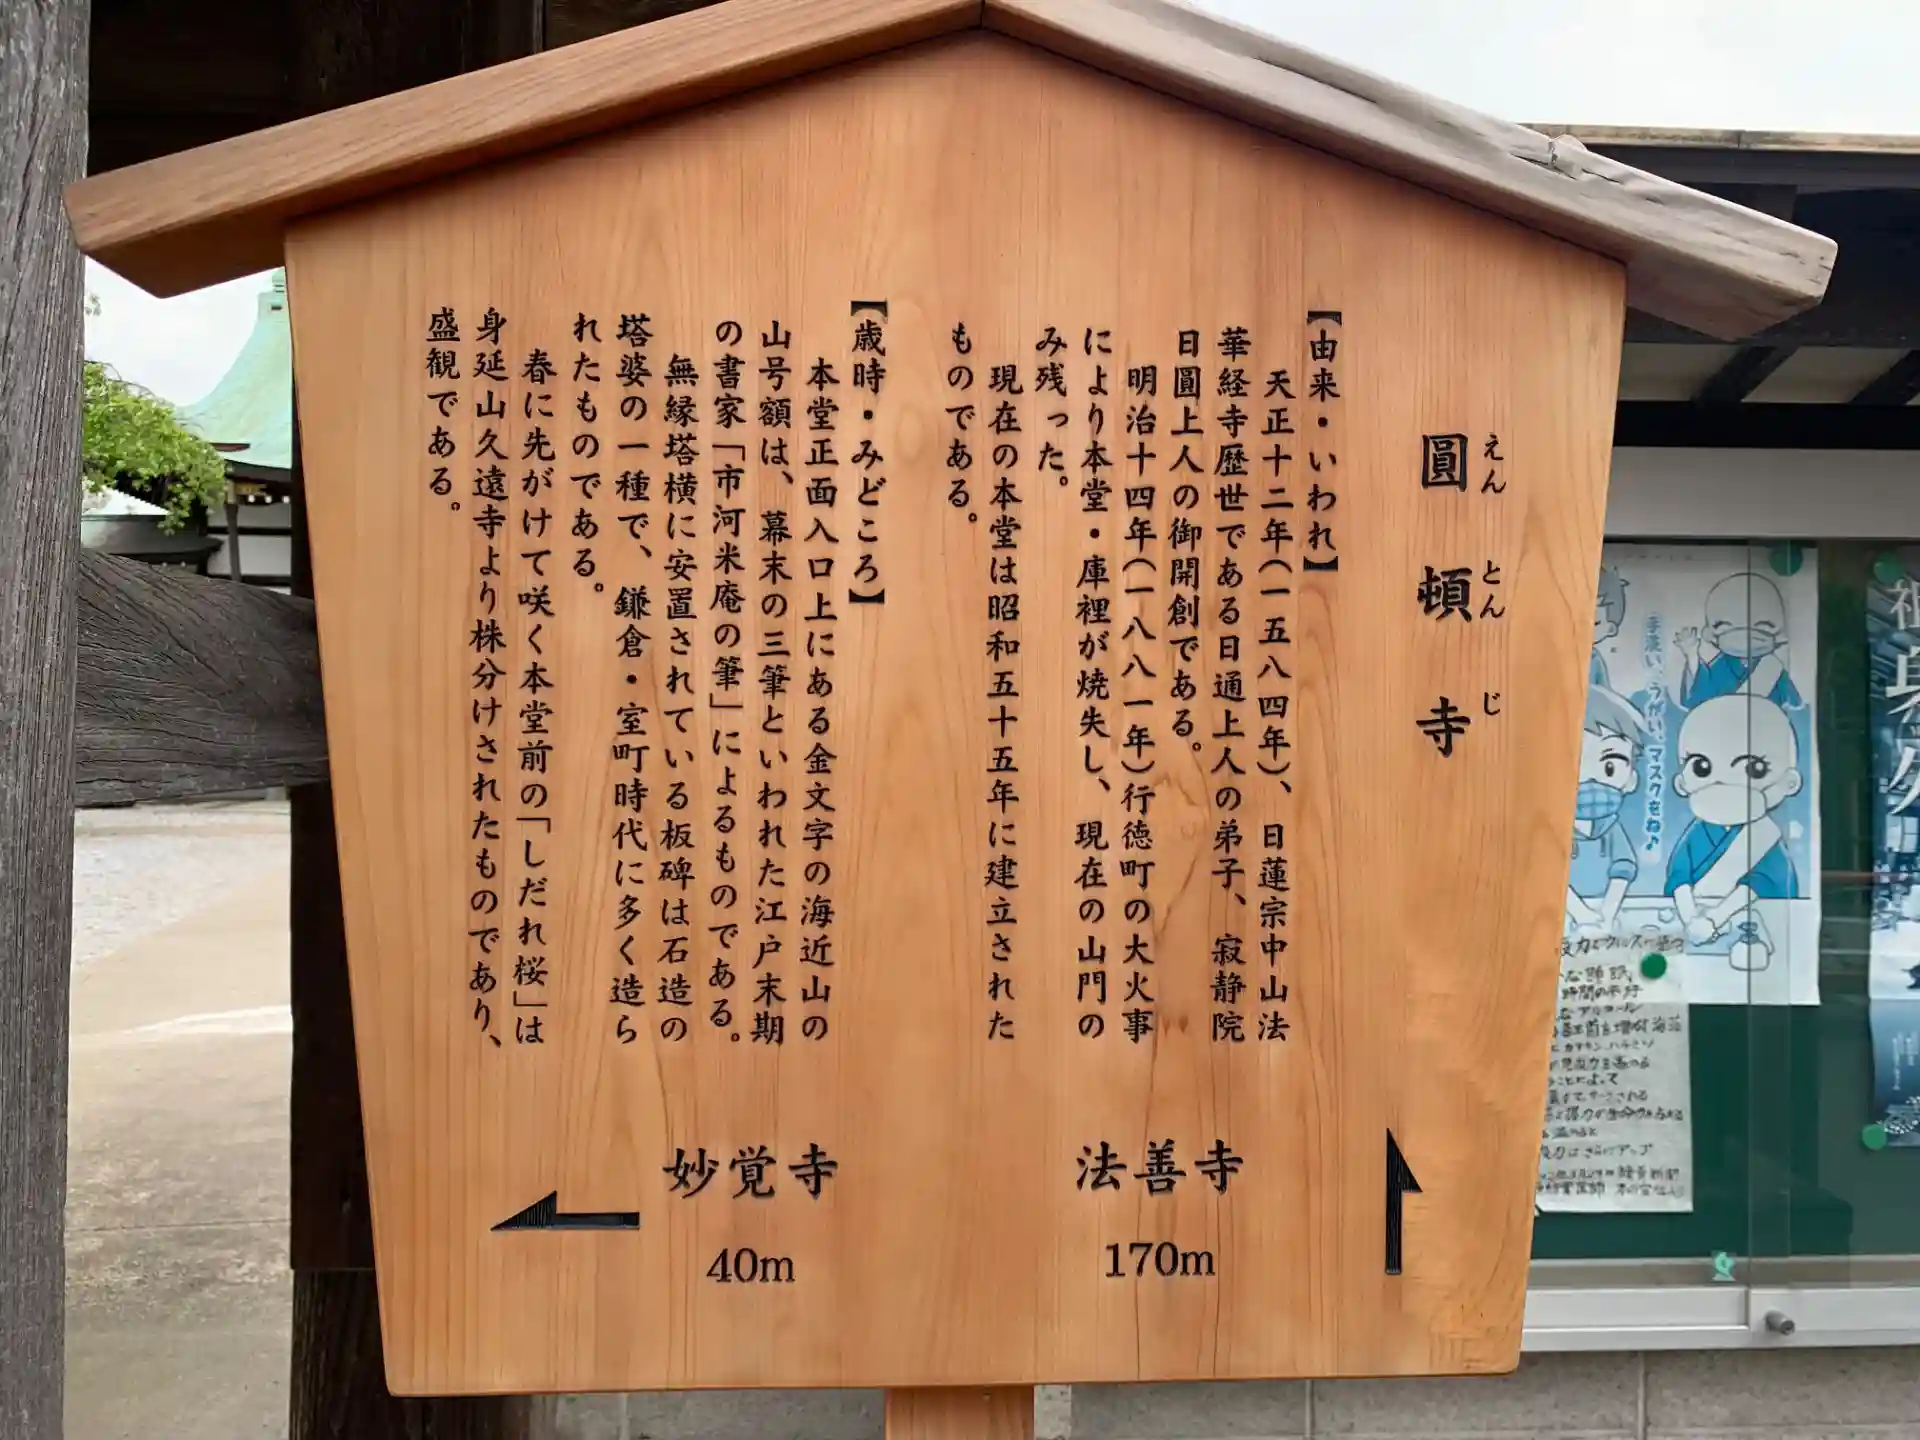 圓頓寺
えんとんじ
【由来・いわれ】
天正十二年(一五八四年)、日蓮宗中山法
華経寺歴世である日通上人の弟子、寂静院
日圓上人の御開創である。
明治十四年(一八八一年)行徳町の大火事
により本堂・庫裡が焼失し、現在の山門の
み残った。
現在の本堂は昭和五十五年に建立された
ものである。
【歳時・みどころ】
本堂正面入口上にある金文字の海近山の
山号額は、幕末の三筆といわれた江戸末期
の書家「市河米庵の筆」によるものである。
無縁塔横に安置されている板碑は石造の
塔婆の一種で、鎌倉・室町時代に多く造ら
れたものである。
春に先がけて咲く本堂前の「しだれ桜」は
身延山久遠寺より株分けされたものであり、
盛観である。
法善寺
170m
妙覚寺
40m
手洗い、うがい、マスクをね♪